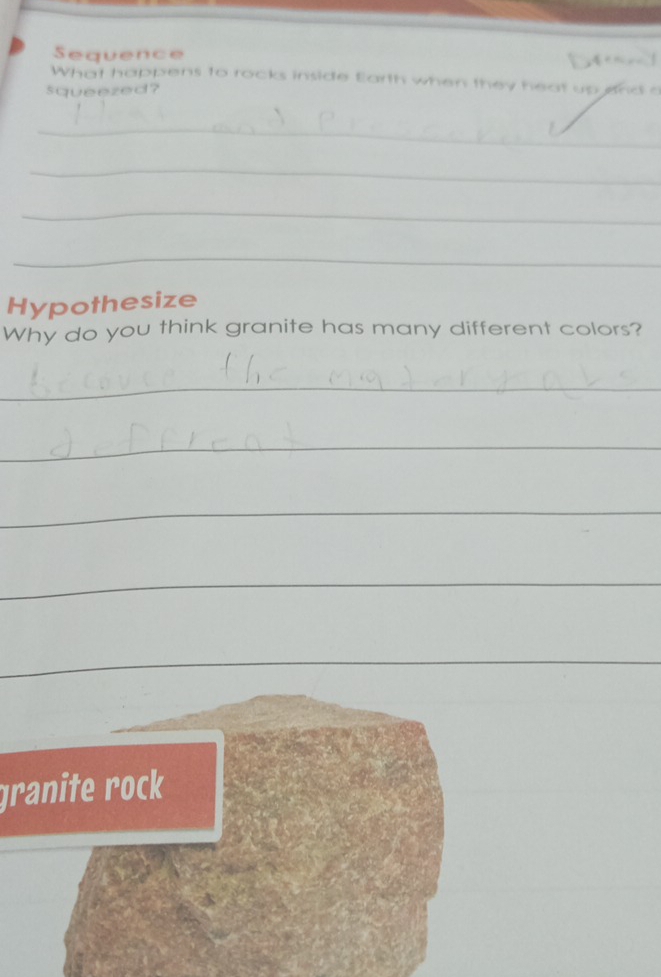 Sequence
What happens to rocks inside Earth when they heat up and
squeezed?
Heat and Pressure
Hypothesize
Why do you think granite has many different colors?
becouse the materyals
deffreat
granite rock